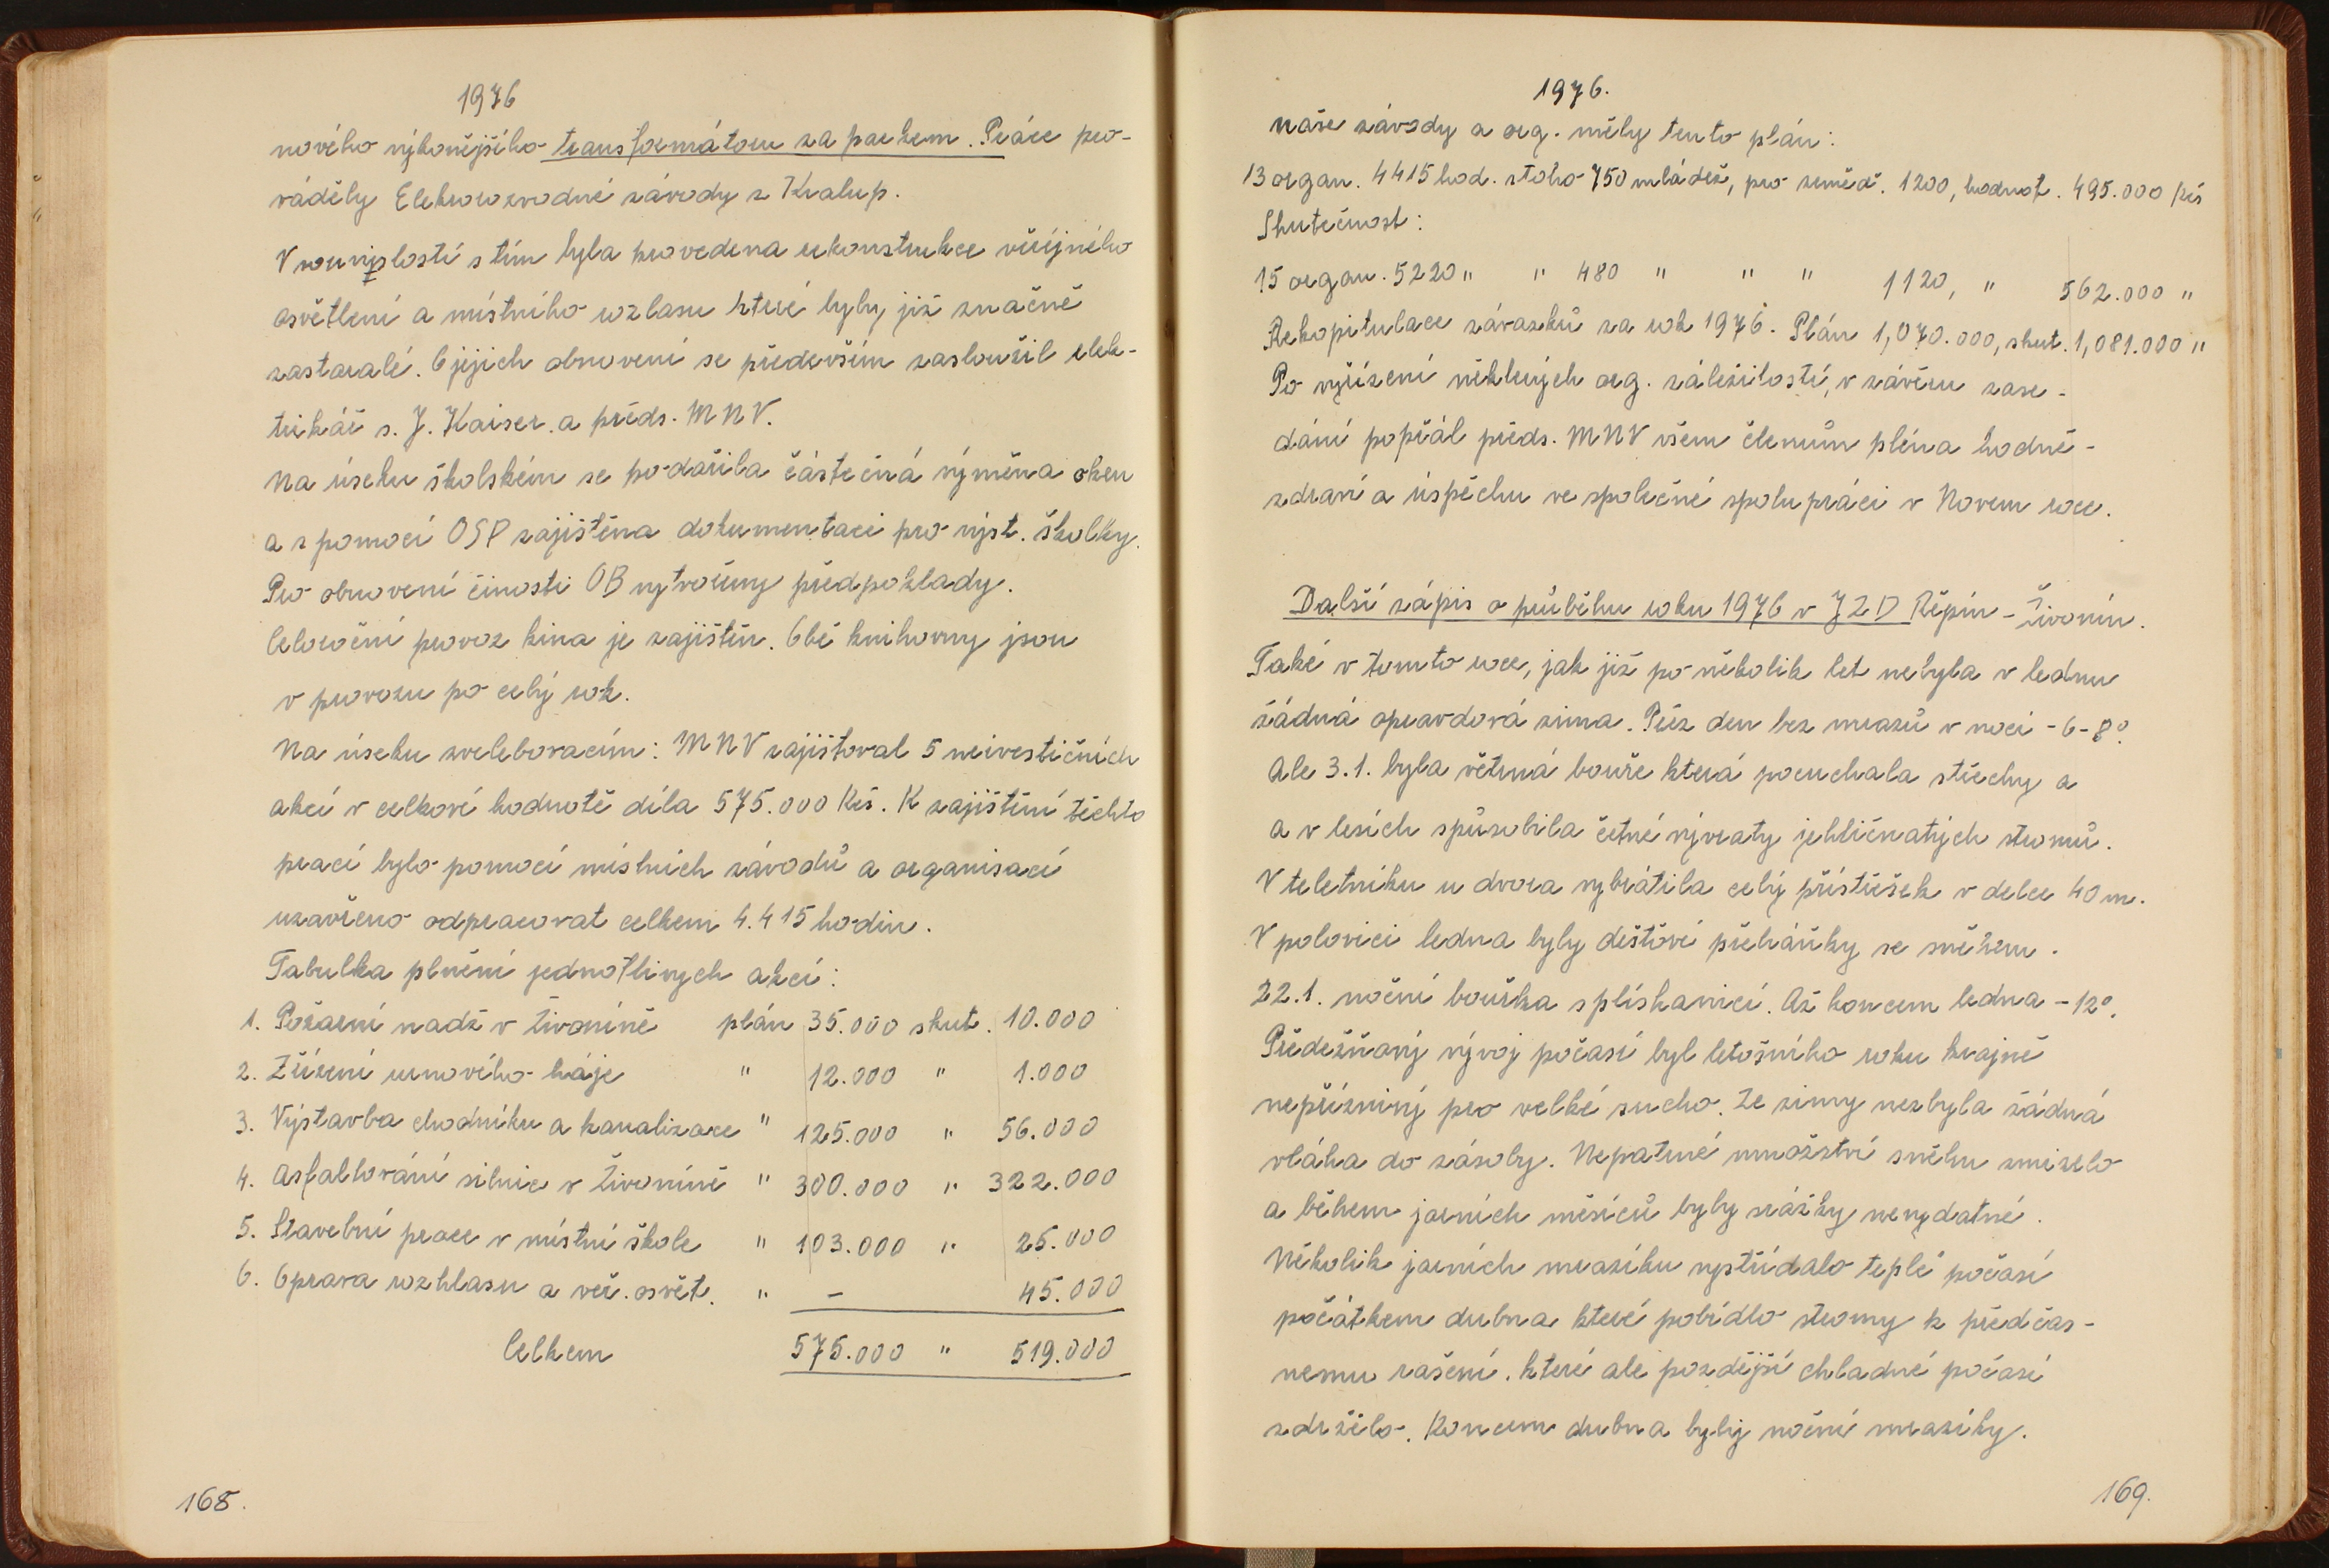 1976
nového výkonějšího transformátoru za parkem. Práce pro-
váděly Elekrorozvodné závody z Kralup.
V souvislosti s tím byla provedena rekonstrukce veřejného
osvětlení a místního rozlasu které byly již značně
zastaralé. O jejich obnovení se především zasloužil elek-
trikář s. J. Kaiser. a předs. MNV.
Na úseku školském se podařila částečná výměna oken
a s pomocí OSP zajištěna dokumentaci pro výst. školky.
Pro obnovení činosti OB vytvořeny předpoklady.
Celoroční provoz kina je zajištěn. Obě knihovny jsou
v provozu po celý rok.
Na úseku zvelebovacím: MNV zajištoval 5 neivestičních
akcí v celkové hodnotě díla 575.000 Kčs. K zajištění těchto
prací bylo pomocí místních závodů a organisací
uzavřeno odpracovat celkem 4.415 hodin.
Tabulka plnění jednotlivych akcí:
1. Požarní nadž v Živoníně plán 35.000 skut. 10.000
2. Zřízení urnového háje " 12.000 " 1.000
3. Výstavba chodníku a kanalizace " 125.000 " 56.000
4. Asfaltování silnice v Živoníně " 300.000 " 322.000
5. Stavební prace v místní škole " 103.000 " 25.000
6. Oprava rozhlasu a veř. osvět. " – 45.000
Celkem 575.000 " 519.000
168.
1976.
naše závody a org. měly tento plán:
13 organ. 4415 hod. stoho 750 mládež, pro zeměd. 1200, hodnot. 495.000 Kčs
Skutečnost:
15 organ. 5220 " " 480 " " " 1120, " 562.000 "
Rekopitulace závazků za rok 1976. Plán 1,070.000, skut. 1,081.000 "
Po vyřízení některých org. záležitostí, v závěru zase-
dání popřál předs. MNV všem členům pléna hodně-
zdraví a úspěchu ve společné spolupráci v Novem roce.
Další zápis o průběhu roku 1976 v JZD Řepín - Živonín.
Také v tomto roce, jak již po několik let nebyla v lednu
žádná opravdová zima. Přez den bez mrazů v noci -6-8°.
Ale 3.1. byla větrná bouře která pocuchala střechy a
a v lesích spůsobila četné vývraty jehličnatých stromů.
V teletníku u dvora vybrátila celý přístřešek v delce 40 m.
V polovici ledna byly deštové přeháňky se sněhem.
22.1. noční bouřka s plískanicí. Až koncem ledna -12°.
Předežňový vývoj počasí byl letošního roku krajně
nepřízniný pro velké sucho. Ze zimy nezbyla žádná
vláha do zásoby. Nepatrné množství sněhu zmizelo
a během jarních měsíců byly srážky nevydatné.
Několik jarních mrazíku vystřídalo teplé počasí
počátkem dubna které pobídlo stromy k předčas-
nemu rašení. které ale pozdější chladné počasí
zdrželo. Koncem dubna byly noční mrazíky.
169.